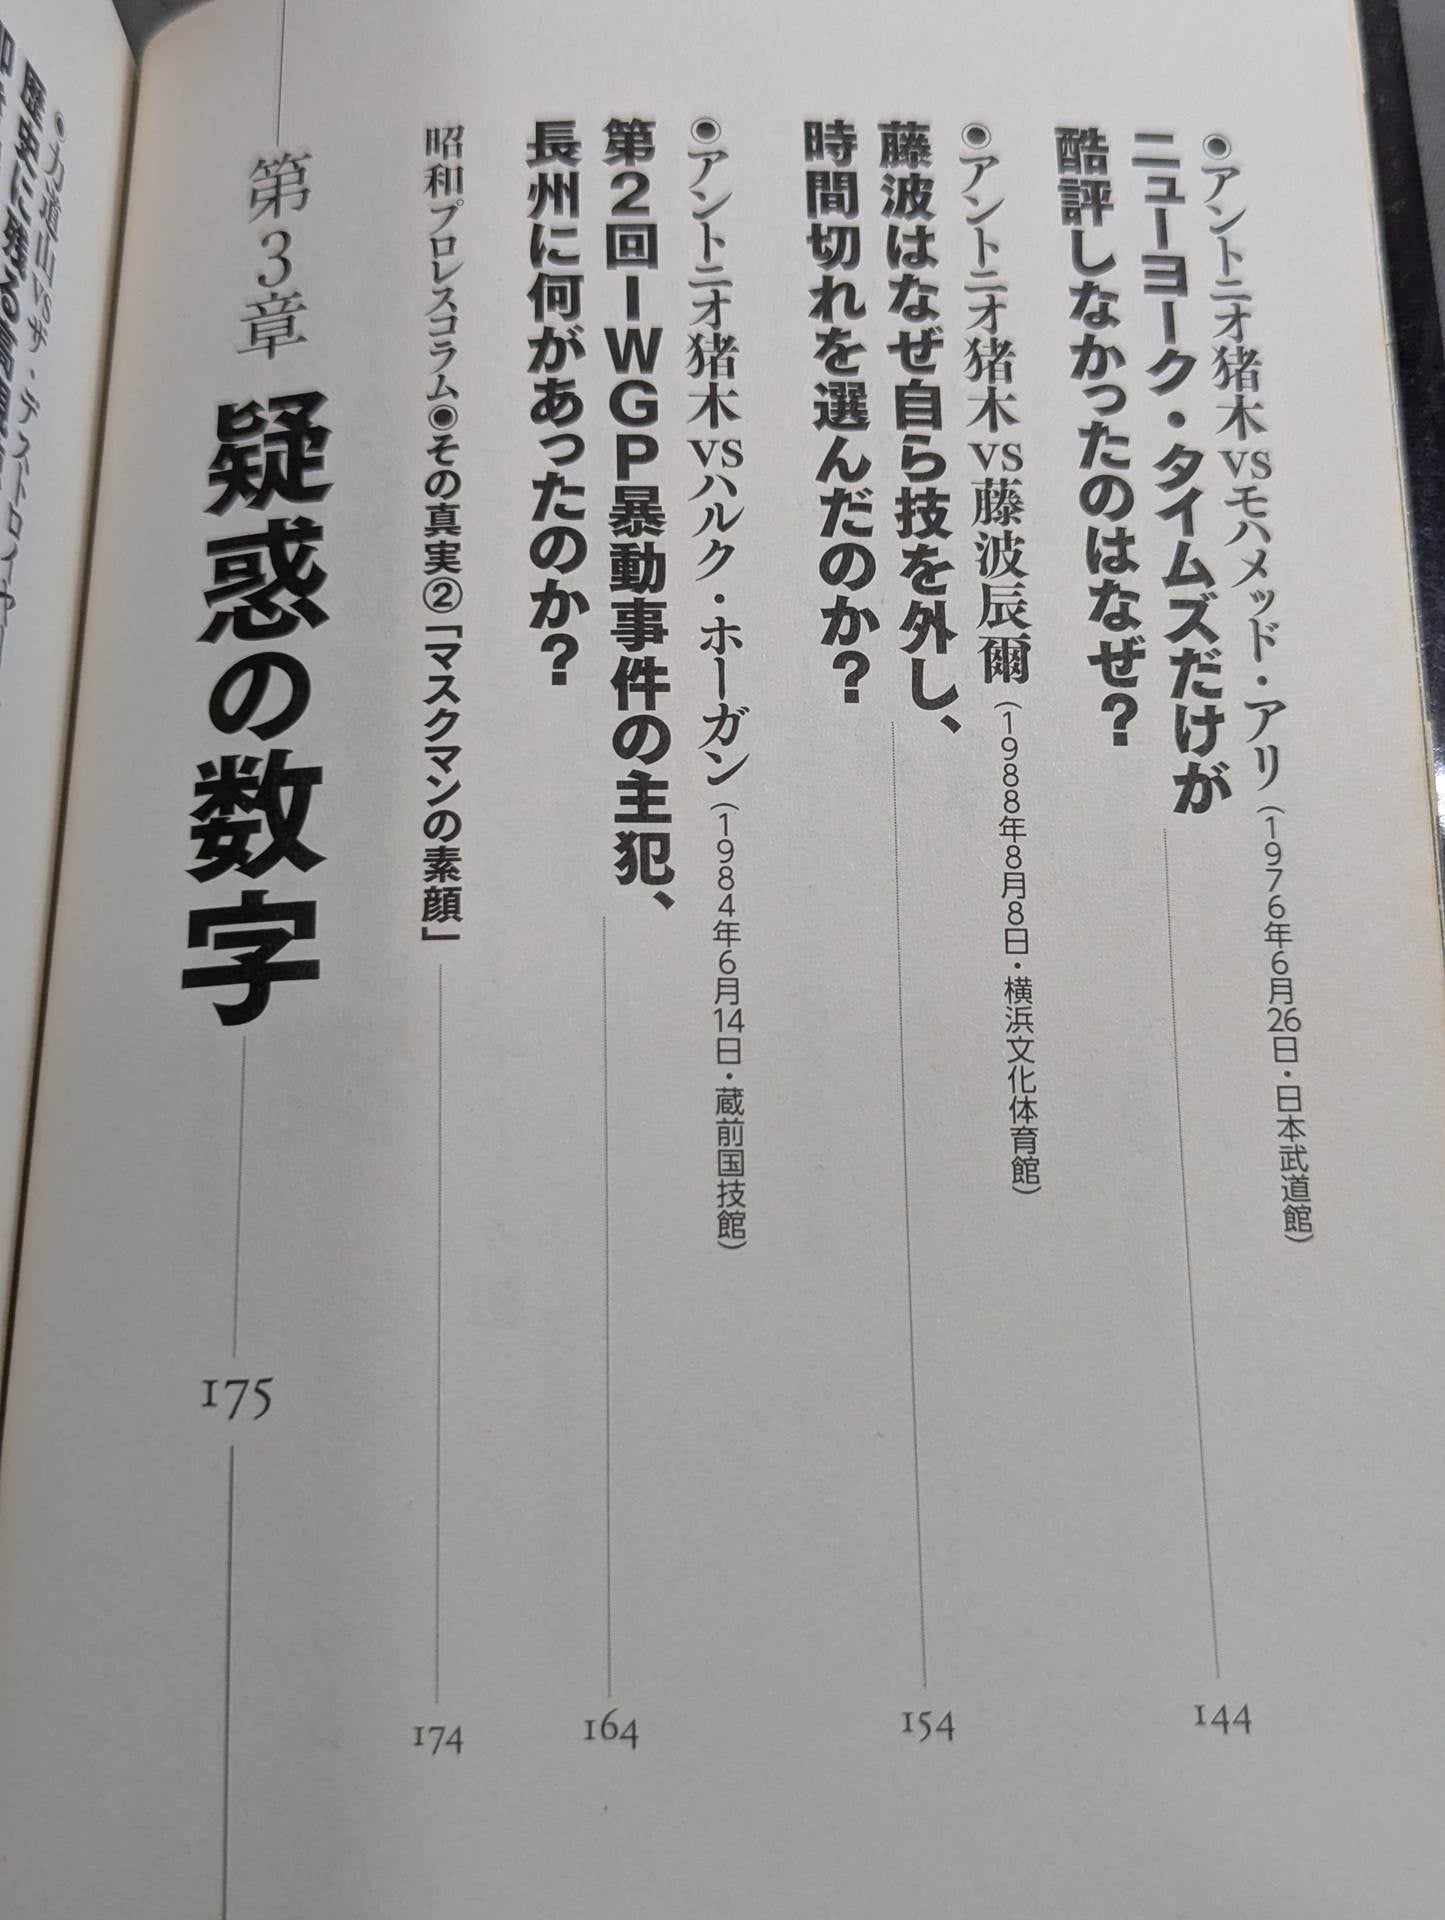 ◉アントニオ猪木vsモハメッド・アリ(1976年6月26日・日本武道館)
ニューヨーク・タイムズだけが
酷評しなかったのはなぜ? 144
◉アントニオ猪木vs藤波辰爾(1988年8月8日・横浜文化体育館)
藤波はなぜ自ら技を外し、
時間切れを選んだのか? 154
◉アントニオ猪木vsハルク・ホーガン(1984年6月14日・蔵前国技館)
第2回IWGP暴動事件の主犯、
長州に何があったのか? 164
昭和プロレスコラム◉その真実②「マスクマンの素顔」 174
第3章 疑惑の数字 175
◉力道山vsザ・デストロイヤー
歴史に残る